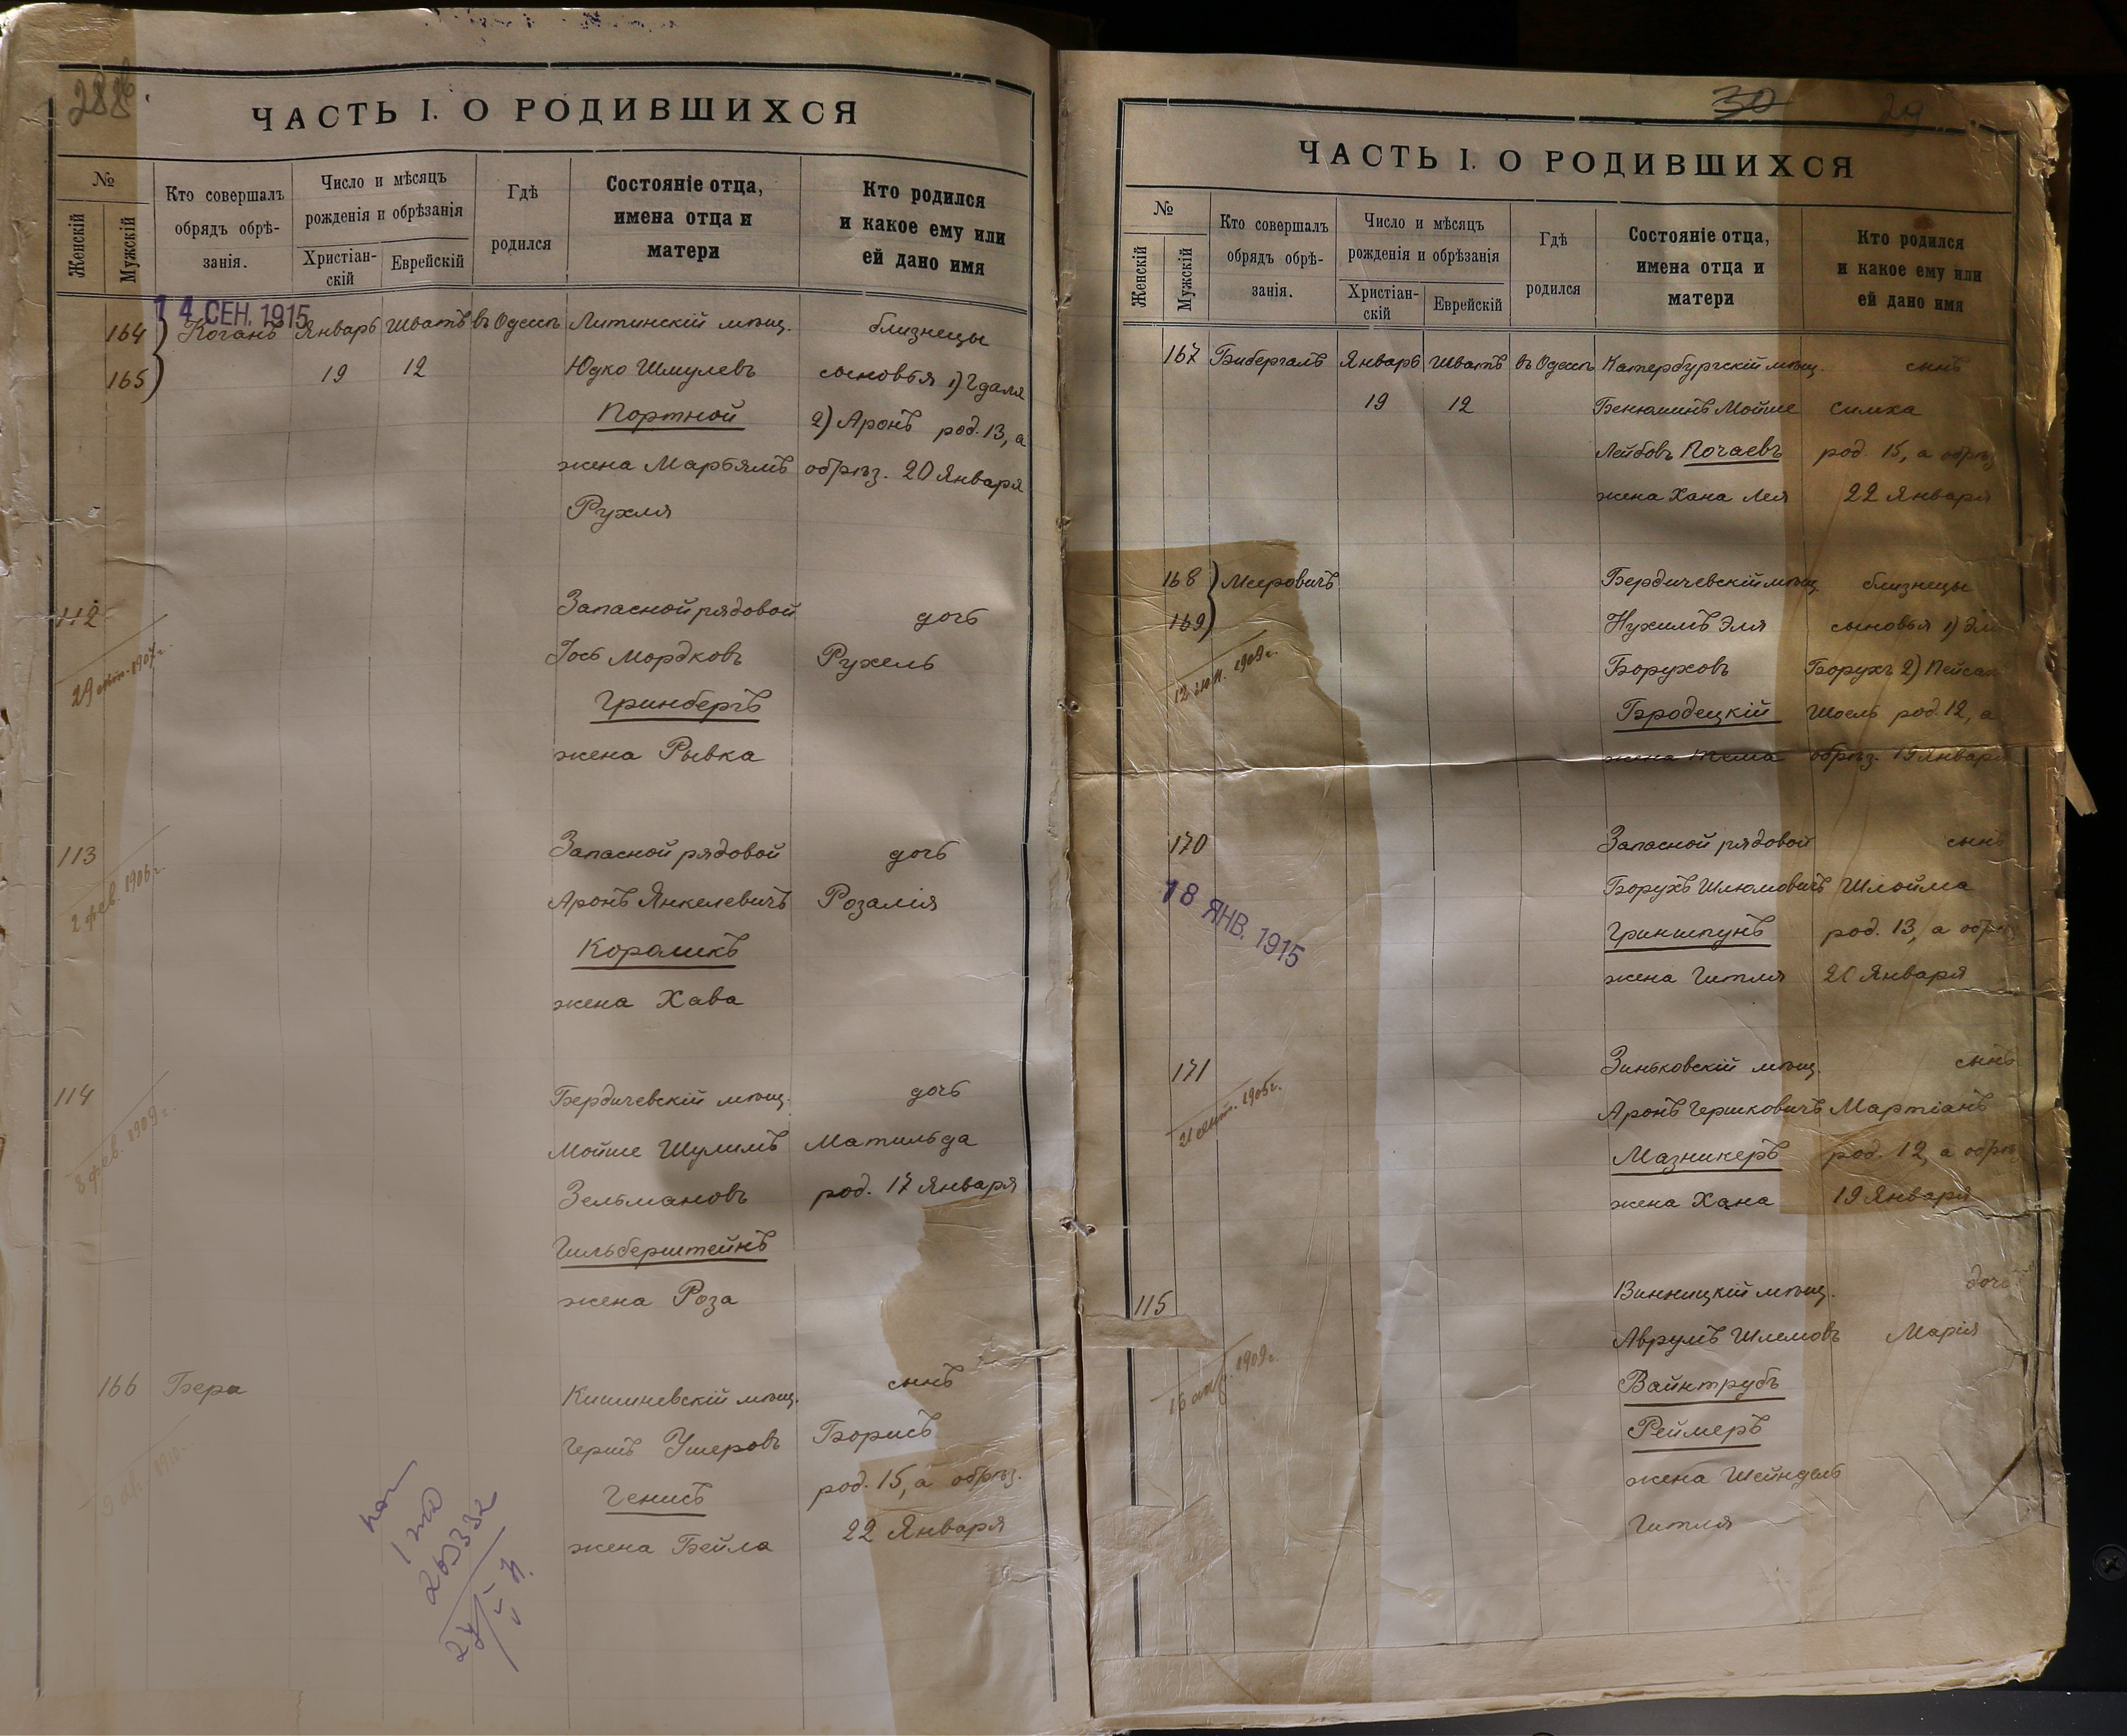 288
ЧАСТЬ I. О РОДИВШИХСЯ
№
Женскій
Мужскій
Кто совершалъ
обрядъ обрѣ-
занія.
Число и мѣсяцъ
рожденія и обрѣзанія
Христіан-
скій
Еврейскій
Гдѣ
родился
Состояніе отца,
имена отца и
матери
Кто родился
и какое ему или
ей дано имя
14 СЕН. 1915
164 Коганъ Январь Шватъ въ Одессѣ Литинскій мѣщ. близнецы
165 19 12 Юдко Шмулевъ сыновья 1) Гдаля
Портной 2) Аронъ род. 13, а
жена Марьямъ обрѣз. 20 Января
Рухля
112 Запасной рядовой дочь
Іось Мордковъ Рухель
Гринбергъ
жена Рывка
113 Запасной рядовой дочь
2 фев. 1906 г.
Аронъ Янкелевичъ Розалія
Короликъ
жена Хава
114 Бердичевскій мѣщ. дочь
8 фев. 1909 г.
Мойше Шулимъ Матильда
Зельмановъ род. 17 Января
Гильберштейнъ
жена Роза
166 Бера Кишиневскій мѣщ. сынъ
Гершъ Ушеровъ Борисъ
Генисъ род. 15, а обрѣз.
жена Бейла 22 Января
30 29
ЧАСТЬ I. О РОДИВШИХСЯ
№
Женскій
Мужскій
Кто совершалъ
обрядъ обрѣ-
занія.
Число и мѣсяцъ
рожденія и обрѣзанія
Христіан-
скій
Еврейскій
Гдѣ
родился
Состояніе отца,
имена отца и
матери
Кто родился
и какое ему или
ей дано имя
167 Бибергалъ Январь Шватъ въ Одессѣ Катербургскій мѣщ. сынъ
19 12 Бенюминъ Мойше Симха
Лейбовъ Почаевъ род. 15, а обрѣз
жена Хана Лея 22 Января
168 Меровичъ Бердичевскій мѣщ. близнецы
169 Нухимъ Эля сыновья 1)
Боруховъ Борухъ 2) Пейсах
Бродецкій Шоель род. 12, а
жена Тема обрѣз. 19 Января
170 Запасной рядовой сынъ
18 ЯНВ. 1915
Борухъ Шлюмовичъ Шлойма
Гриншпунъ род. 13, а обрѣз
жена Гитля 20 Января
171 Зиньковскій мѣщ. сынъ
Аронъ Гершковичъ Мартіанъ
Мазникеръ род. 12, а обрѣз
жена Хана 19 Января
115 Винницкій мѣщ. дочь
Аврумъ Шлемовъ Марія
Вайнтрубъ
Реймеръ
жена Шейндель
Гитля